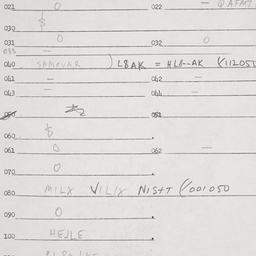 021 0 022 –
030 $
031 0 032 0
033 –
040 SAMOVAR ) L8AK = HL8--AK (112055
041 – 042 =
043 – 044 =
050 051
060 $
061 0 062 –
070 0
080 MILX VILIX NISTT (001050
090 0
100 HEJLE